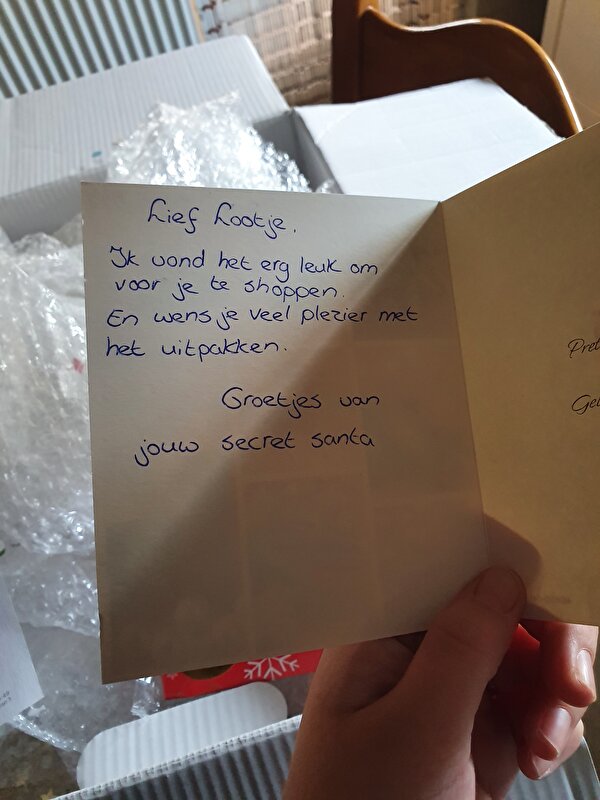 Lief Lootje,
Ik vond het erg leuk om
voor je te shoppen.
En wens je veel plezier met
het uitpakken.
Groetjes van
jouw secret santa